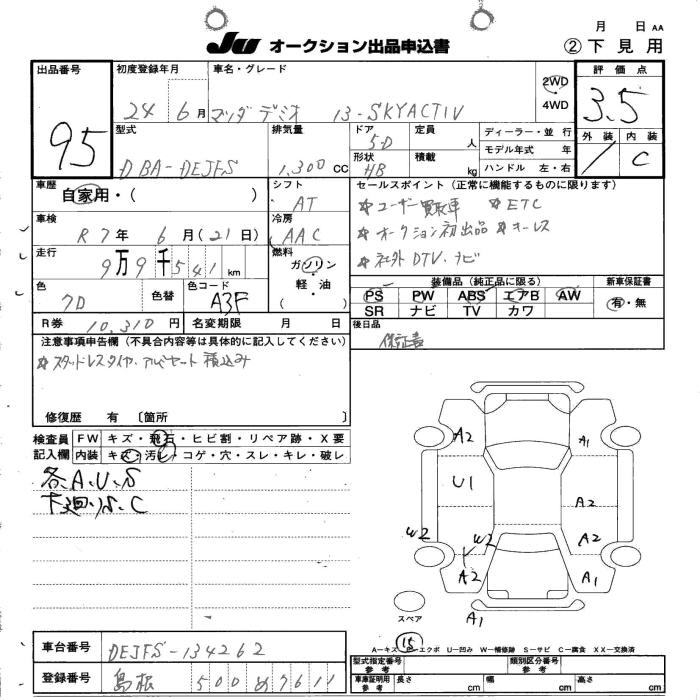 月 日 AA
JU オークション出品申込書 ②下見用
出品番号 初度登録年月 車名・グレード 評価点
95 24 6月 マツダ デミオ 13-SKYACTIV 2WD 4WD 3.5
型式 排気量 ドア 定員 ディーラー・並行 外装 内装
5D 人 モデル年式 年 C
DBA-DEJFS 1,300cc 形状 積載 ハンドル 左・右
HB kg
車歴 自家用・( ) シフト セールスポイント(正常に機能するものに限ります)
AT ☆ユーザー買取車 ☆ETC
車検 R7年 6月(21日) 冷房 AAC ☆オークション初出品 ☆キーレス
走行 9万9千541km 燃料 ガソリン・軽油・( ) ☆社外DTV.ナビ
装備品(純正品に限る) 新車保証書
色 色替 色コード PS PW ABS エアB AW 有・無
7D A3F SR ナビ TV カワ
R券 10,310円 名変期限 月 日 後日品
保証書
注意事項申告欄(不具合内容等は具体的に記入してください)
☆スタッドレスタイヤ.アルミセット積込み
修復歴 有〔箇所 〕
検査員記入欄 FW キズ・飛石・ヒビ割・リペア跡・X要
内装 キズ・汚レ・コゲ・穴・スレ・キレ・破レ
各.A.U.S
下廻りS.C
A2 A1
U1
A2
W2 W2 A2
A2 A1
スペア A1
15
A－キズ E－エクボ U－凹み W－補修跡 S－サビ C－腐食 XX－交換済
車台番号 DEJFS-134262
型式指定番号 参考 類別区分番号 参考
登録番号 島根 500 め7611
車庫証明用 参考 長さ cm 幅 cm 高さ cm